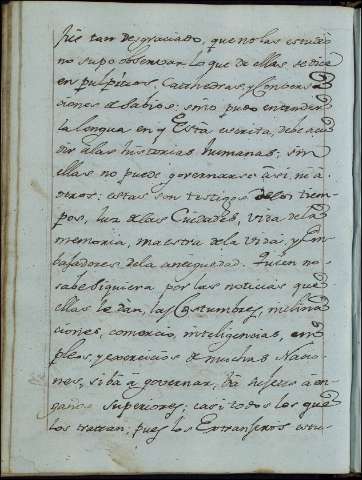 fue tan desgraciado, que no las estudió
no supo observar lo que de ellas se dice
en pulpitos, Cathedras, y Conversa
ciones de Sabios: sino pudo entender
la lengua en q Està escrita, debe acu
dir a las historias humanas; sin
ellas no puede governarse à si, ni a
otros; estas son testigos delos tiem
pos, luz de las Ciudades, vida dela
memoria, maestra de la vida, y Em
bajadores dela antiguedad. Quien no
sabe siquiera por las noticias que
ellas le dan, las Costumbres, inclina
ciones, comercio, inteligencias, em
pleos, y exercicios de muchas Nacio
nes, si bà à governar, bà sujeto à en
gaños Superiores; casi todos los que
los tratan; pues los Extrangeros